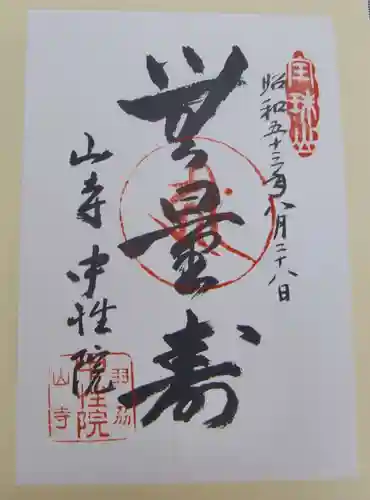 宝珠山
昭和五十三年八月二十八日
無量寿
山寺中性院
山寺
中性院